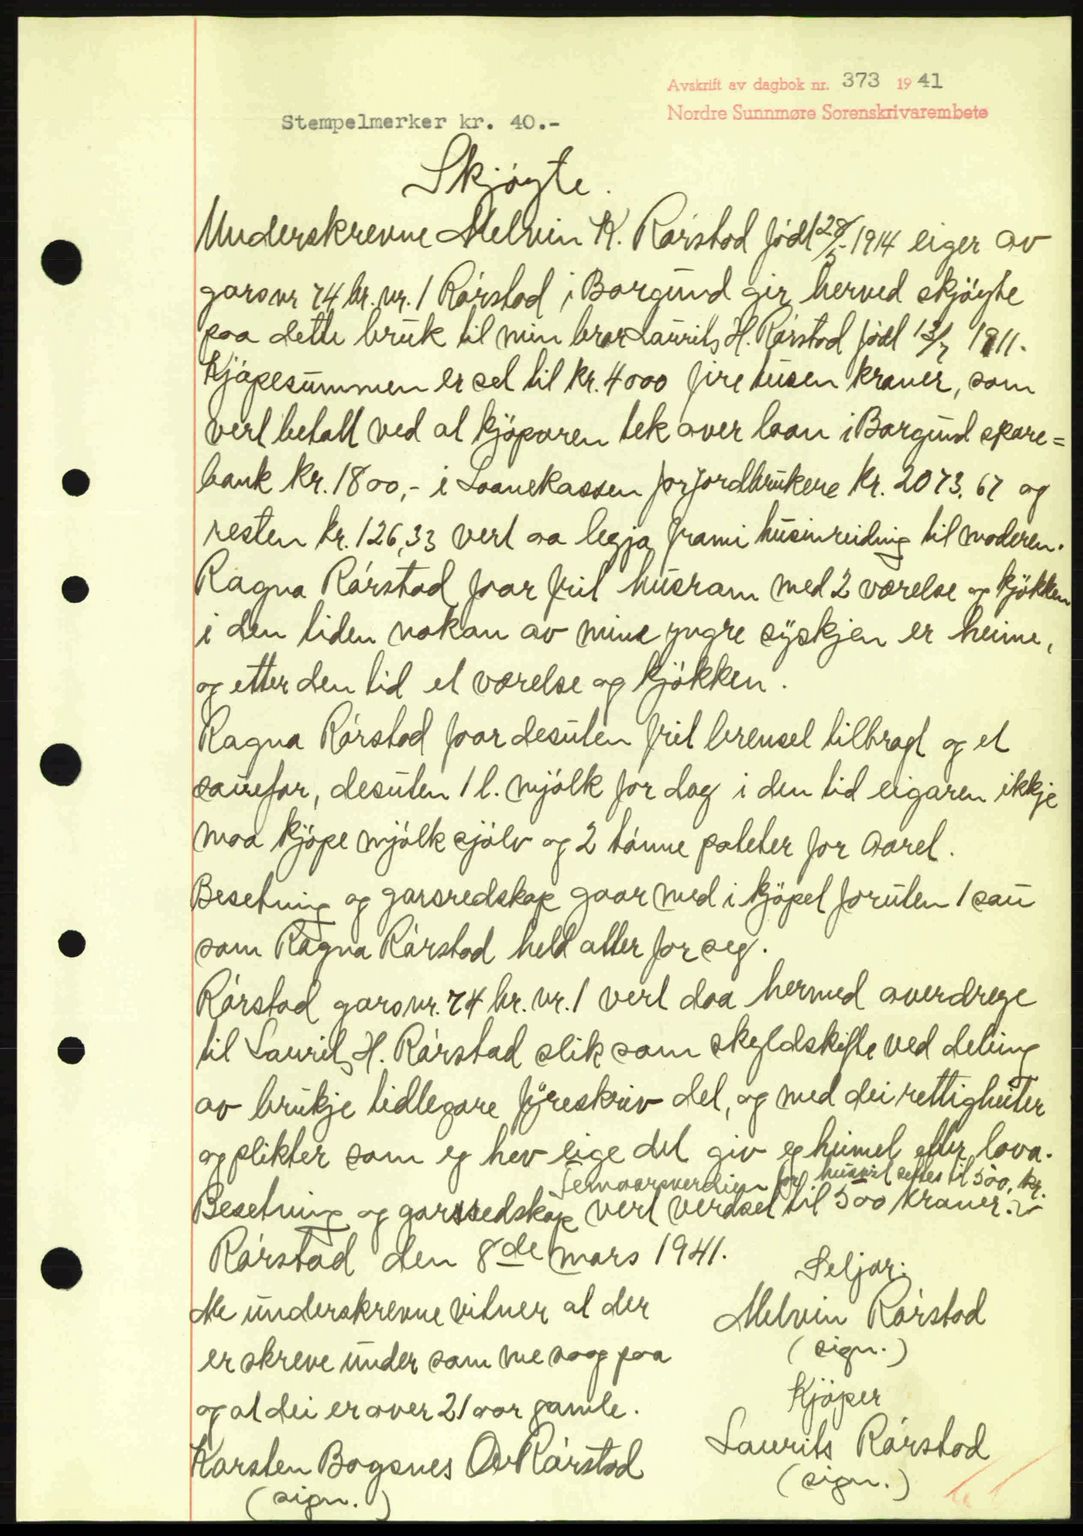 Avskrift av dagbok nr. 373 19 41
Nordre Sunnmøre Sorenskrivarembete
Stempelmerker kr. 40.-
Skjøyte.
Underskrevne Melvin K. Rørstad født 28/5-1914 eiger av
garsnr 74 br. nr. 1 Rørstad i Borgund gir herved skjøyte
paa dette bruk til min bror Laurits H. Rørstad født 13/7 1911.
Kjøpesummen er set til kr. 4000 fire tusen kroner, som
vert betalt ved at kjøparen tek over laan i Borgund spare=
bank kr. 1800,- i Laanekassen for jordbrukere kr. 2073,67 og
resten kr. 126,33 vert aa legja frami husinreiding til moderen.
Ragna Rørstad faar frit husrom med 2 værelse og kjøkken
i den tiden nokon av mine yngre syskjen er heime,
og etter den tid et værelse og kjøkken.
Ragna Rørstad faar desuten frit brensel tilbragt og et
sauefor, desuten 1 l. mjølk for dag i den tid eigaren ikkje
maa kjøpe mjølk sjølv og 2 tønne poteter for aaret.
Besetning og garsredskap gaar med i kjøpet foruten 1 sau
som Ragna Rørstad held atter for seg.
Rørstad garsnr. 74 br. nr. 1 vert daa hermed overdrege
til Laurits H. Rørstad slik som skyldskifte ved deling
av brukje tidlegare fyreskriv det, og med dei rettigheiter
og plikter som eg hev eige det giv eg heimel etter lova.
Femaarsverdien for husvit settes til 500, kr.
Besetning og garsredskap vert verdset til 500 kroner.
Rørstad den 8de mars 1941.
Seljar:
Me underskrevne vitner at der
Melvin Rørstad
er skreve under som me saag paa
(sign.)
og at dei er over 21 aar gamle.
Kjøper
Karsten Bogsnes Ov Rørstad
Laurits Rørstad
(sign. )
(sign.)